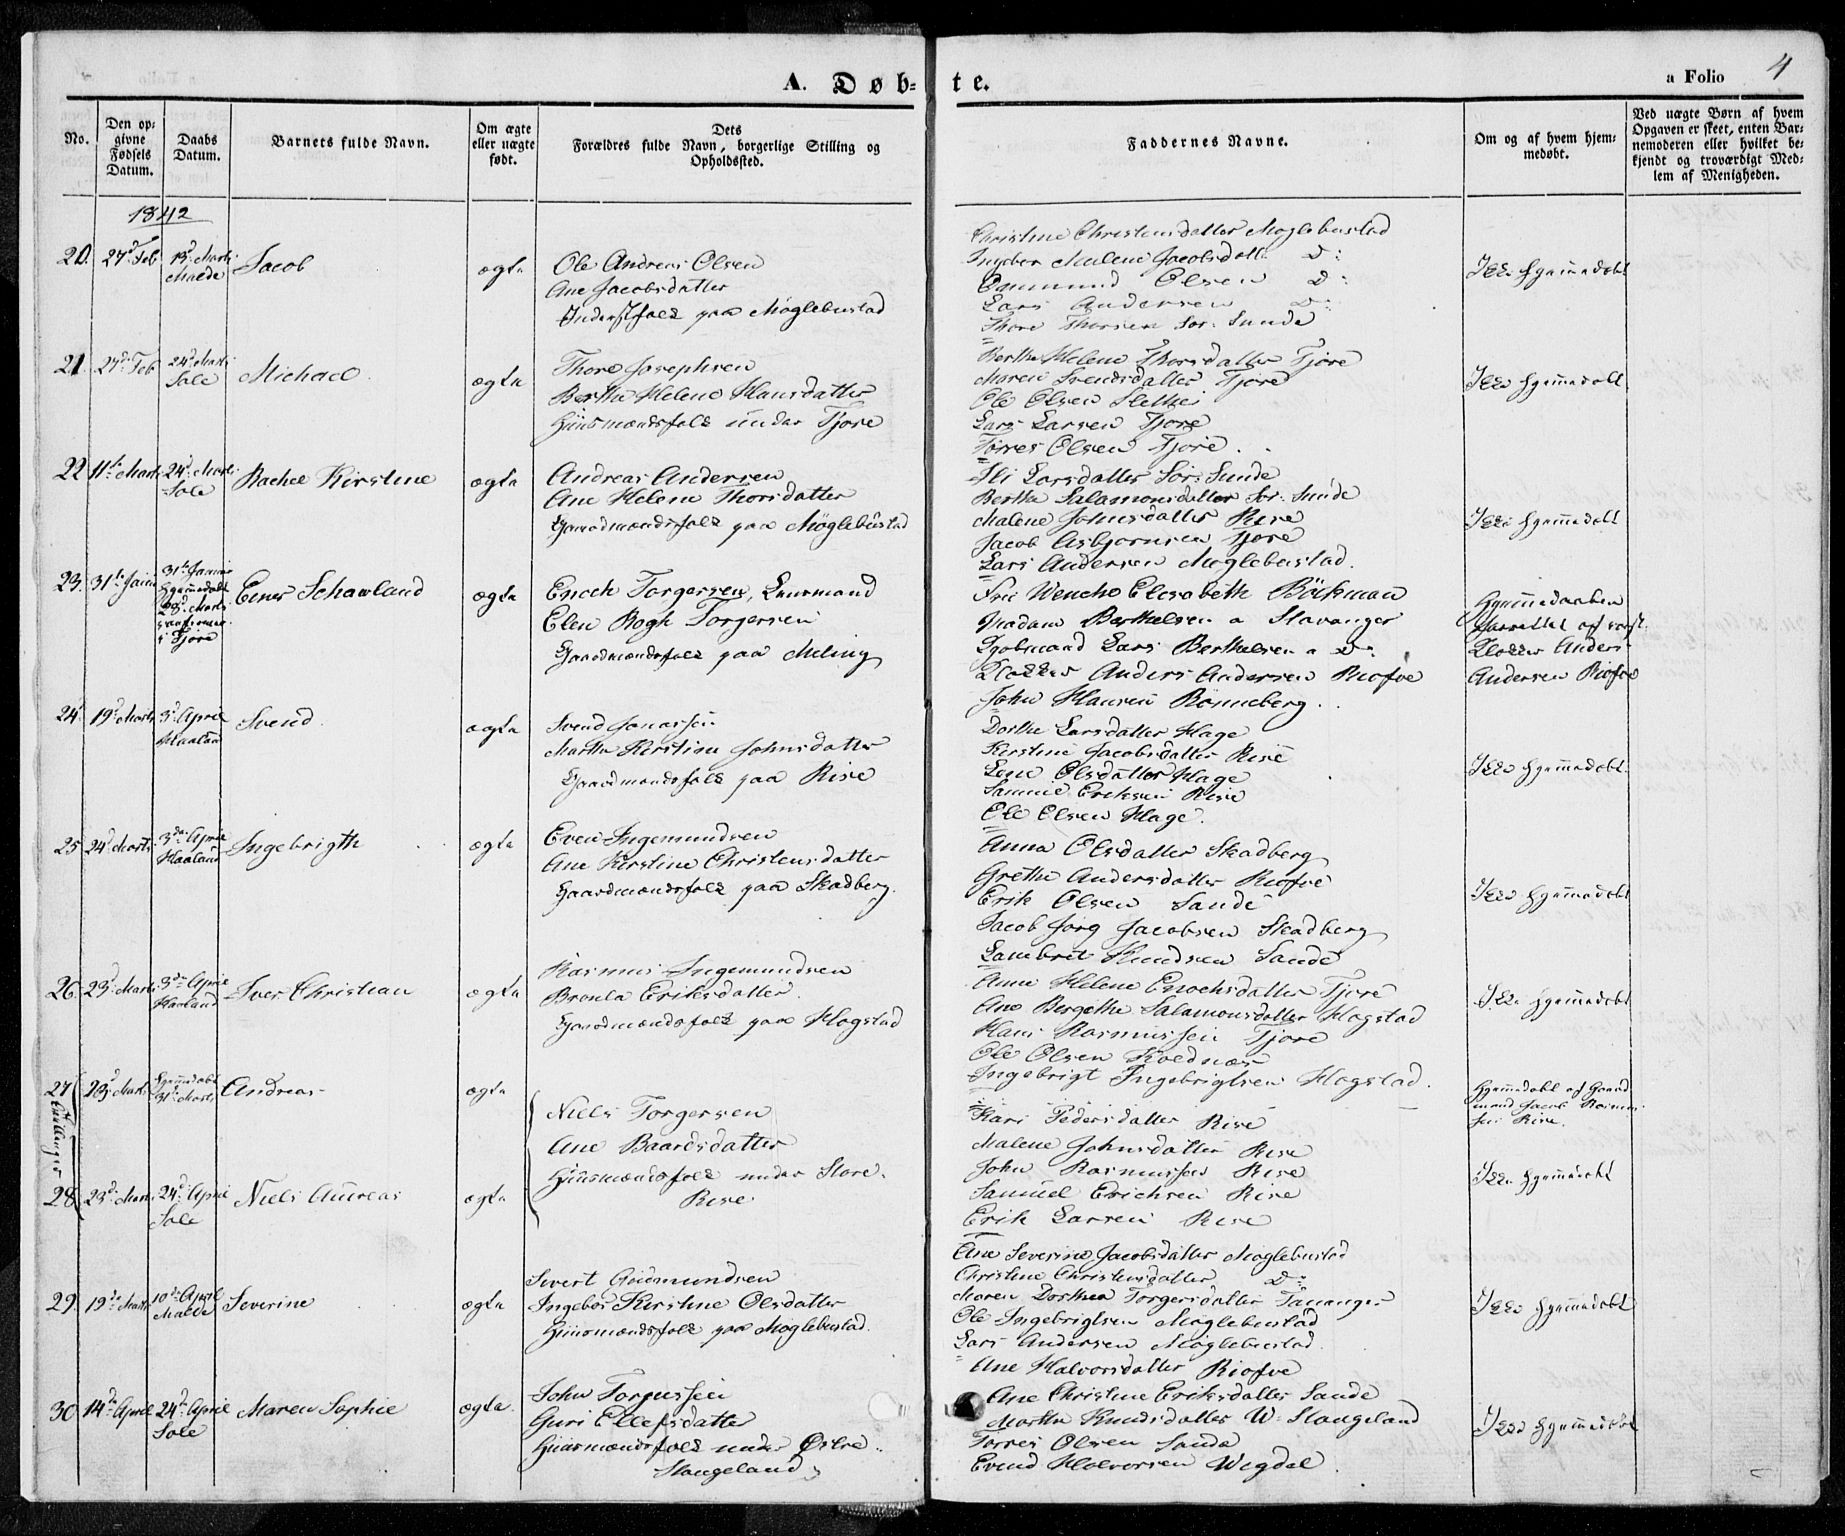 A. Døb-
te.
a Folio 4
No.
Den op-
givne
Fødsels
Datum.
Daabs
Datum.
Barnets fulde Navn.
Om ægte
eller uægte
født.
Dets
Forældres fulde Navn, borgerlige Stilling og
Opholdssted.
Faddernes Navne.
Om og af hvem hjem-
medøbt.
Ved uægte Børn af hvem
Opgaven er skeet, enten Bar-
nemoderen eller hvilket be-
kjendt og troværdigt Med-
lem af Menigheden.
1842
20. 27d Feb 13d Marts
Malde
Jacob
ægte
Ole Andreas Olsen
Ane Jacobsdatter
Inderstfolk paa Møglebustad
Christine Christensdatter Møglebustad
Ingebor Malene Jacobsdatt: D:
Emmund Olsen D:
Lars Andersen D:
Thore Thorsen Sør: Sunde
Ikke hjemmedøbt
21. 27d Feb 24d Marts
Sole
Michael
ægte
Thore Josephsen
Berthe Helene Hansdatter
Huusmandsfolk under Tjore
Berthe Helene Thorsdatter Tjore
Maren Svendsdatter Tjore
Ole Olsen Slethei
Lars Larsen Tjore
Torres Olsen Tjore
Ikke hjemmedøbt
22 11te Marts 24d Marts
Sole
Rachel Kirstine
ægte
Andreas Andersen
Ane Helene Thorsdatter
Gaardmandsfolk paa Møglebustad
Sli Larsdatter Sør: Sunde
Berthe Salamonsdatter Sør: Sunde
Malene Johnsdatter Rise
Jacob Asbjørnsen Tjore
Lars Andersen Møglebustad.
Ikke hjemmedøbt
23. 31te Janu 31te Janu
hjemmedøbt
28d Marts
i Tjore
Schawland
ægte
Enoch Torgersen, Lensmand
Elen Bogh Torgersen
Gaardmandsfolk paa Meling
Frue Wencke Elisabeth Böckman
Madam Berthelsen a Stavanger
Kjøbmand Lars Berthelsen a D:
Klokker Anders Andersen Riofve
John Hansen Rønneberg
Hjemmedaaben
forrettet af
Klokker Anders
Andersen Riofve
24 19d Marts 3d April
Haaland
Svend
ægte
Svend Jonassen
Marthe Kirstine Johnsdatter
Gaardmandsfolk paa Rise
Dorthe Larsdatter Hage
Kirstine Jacobsdatter Rise
Lene Olsdatter Hage
Samuel Eriksen Rise
Ole Olsen Hage.
Ikke hjemmedøbt
25 24d Marts 3de April
Haaland
Ingebrigth
ægte
Even Ingemundsen
Ane Kirstine Christensdatter
Gaardmandsfolk paa Skadberg.
Anna Olsdatter Skadberg
Grethe Andersdatter Riofve
Erik Olsen Sande
Jacob Jørg Jacobsen Skadberg
Lambret Knudsen Sande
Ikke hjemmedøbt
26. 23d Marts 3de April
Haaland
Iver Christian
ægte
Rasmus Ingemundsen
Bronla Eriksdatter
Gaardmandsfolk paa Hogstad
Anne Helene Enochsdatter Tjore
Ane Bergethe Salamonsdatter Hogstad
Hans Rasmussen Tjore
Ole Olsen Koldnæs
Ingebrigt Ingebrigtsen Hogstad.
Ikke hjemmedøbt
27 23d Marts hjemmedøbt
31te Marts
Andreas
ægte
Tvillinger
Niels Torgersen
Ane Baardsdatter
Huusmandsfolk under Store
Rise
Kari Pedersdatter Rise
Malene Johnsdatter Rise
John Rasmussen Rise
Samuel Erichsen Rise
Erik Larsen Rise
Hjemmedøbt af Gaard
mand Jacob Rasmus
sen Rise.
28 23d Marts 24d April
Sole
Niels Andreas
ægte
Ikke hjemmedøbt
29. 19de Marts 10de April
Malde
Severine
ægte
Sivert Gudmundsen
Ingebor Kirstine Olsdatter
Huusmandsfolk paa Møglebustad.
Ane Severine Jacobsdatter Møglebustad
Christine Christensdatter D:
Maren Dorthea Torgersdatter Tananger
Ole Ingebrigtsen Møglebustad
Lars Andersen Møglebustad.
Ikke hjemmedøbt
30 14de April 24de April
Sole
Maren Sophie
ægte
John Torgussen
Guri Ellefsdatter
Huusmandsfolk under Østre
Stangeland
Ane Halvorsdatter Riofve
Ane Christine Eriksdatter Sande
Marthe Knudsdatter W: Stangeland
Torres Olsen Sande
Evend Halvorsen Wigdel
Ikke hjemmedøbt